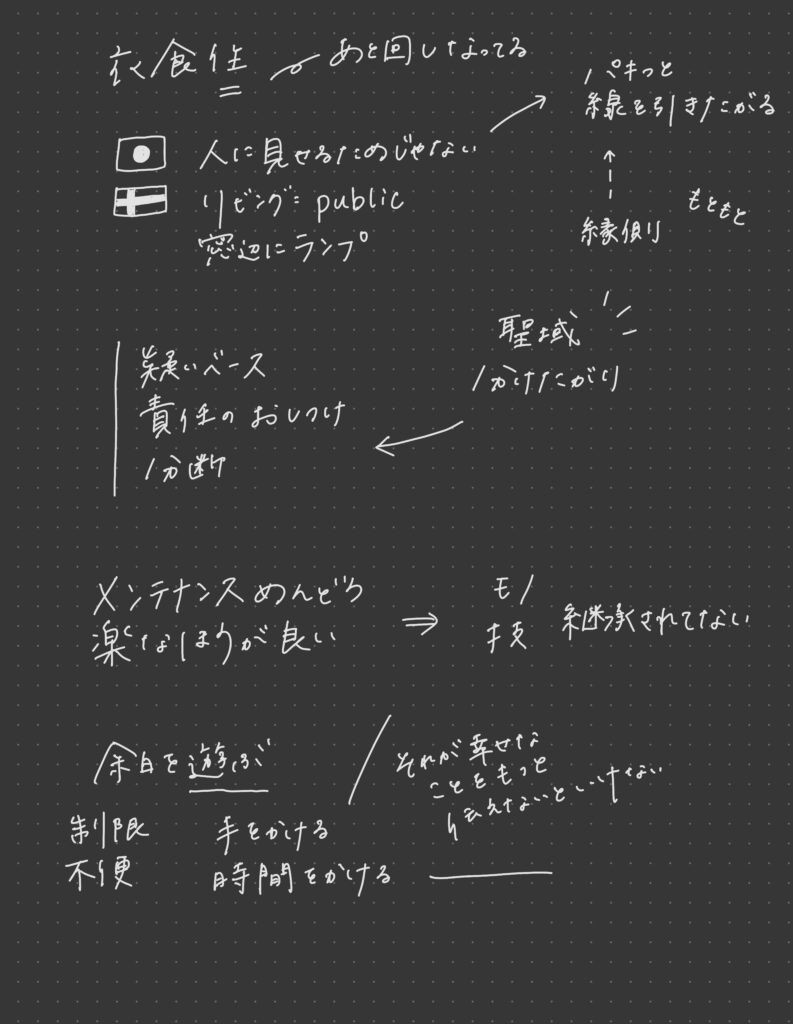 衣食住
あと回しなってる
パキっと
線を引きたがる
人に見せるためじゃない
リビング= public
窓辺にランプ
縁側
もともと
聖域
分けたがり
疑いベース
責任のおしつけ
分断
メンテナンスめんどう
楽なほうが良い
⇒
モノ
技
継承されてない
余白を遊ぶ
それが幸せな
ことをもっと
伝えないといけない
制限 手をかける
不便 時間をかける